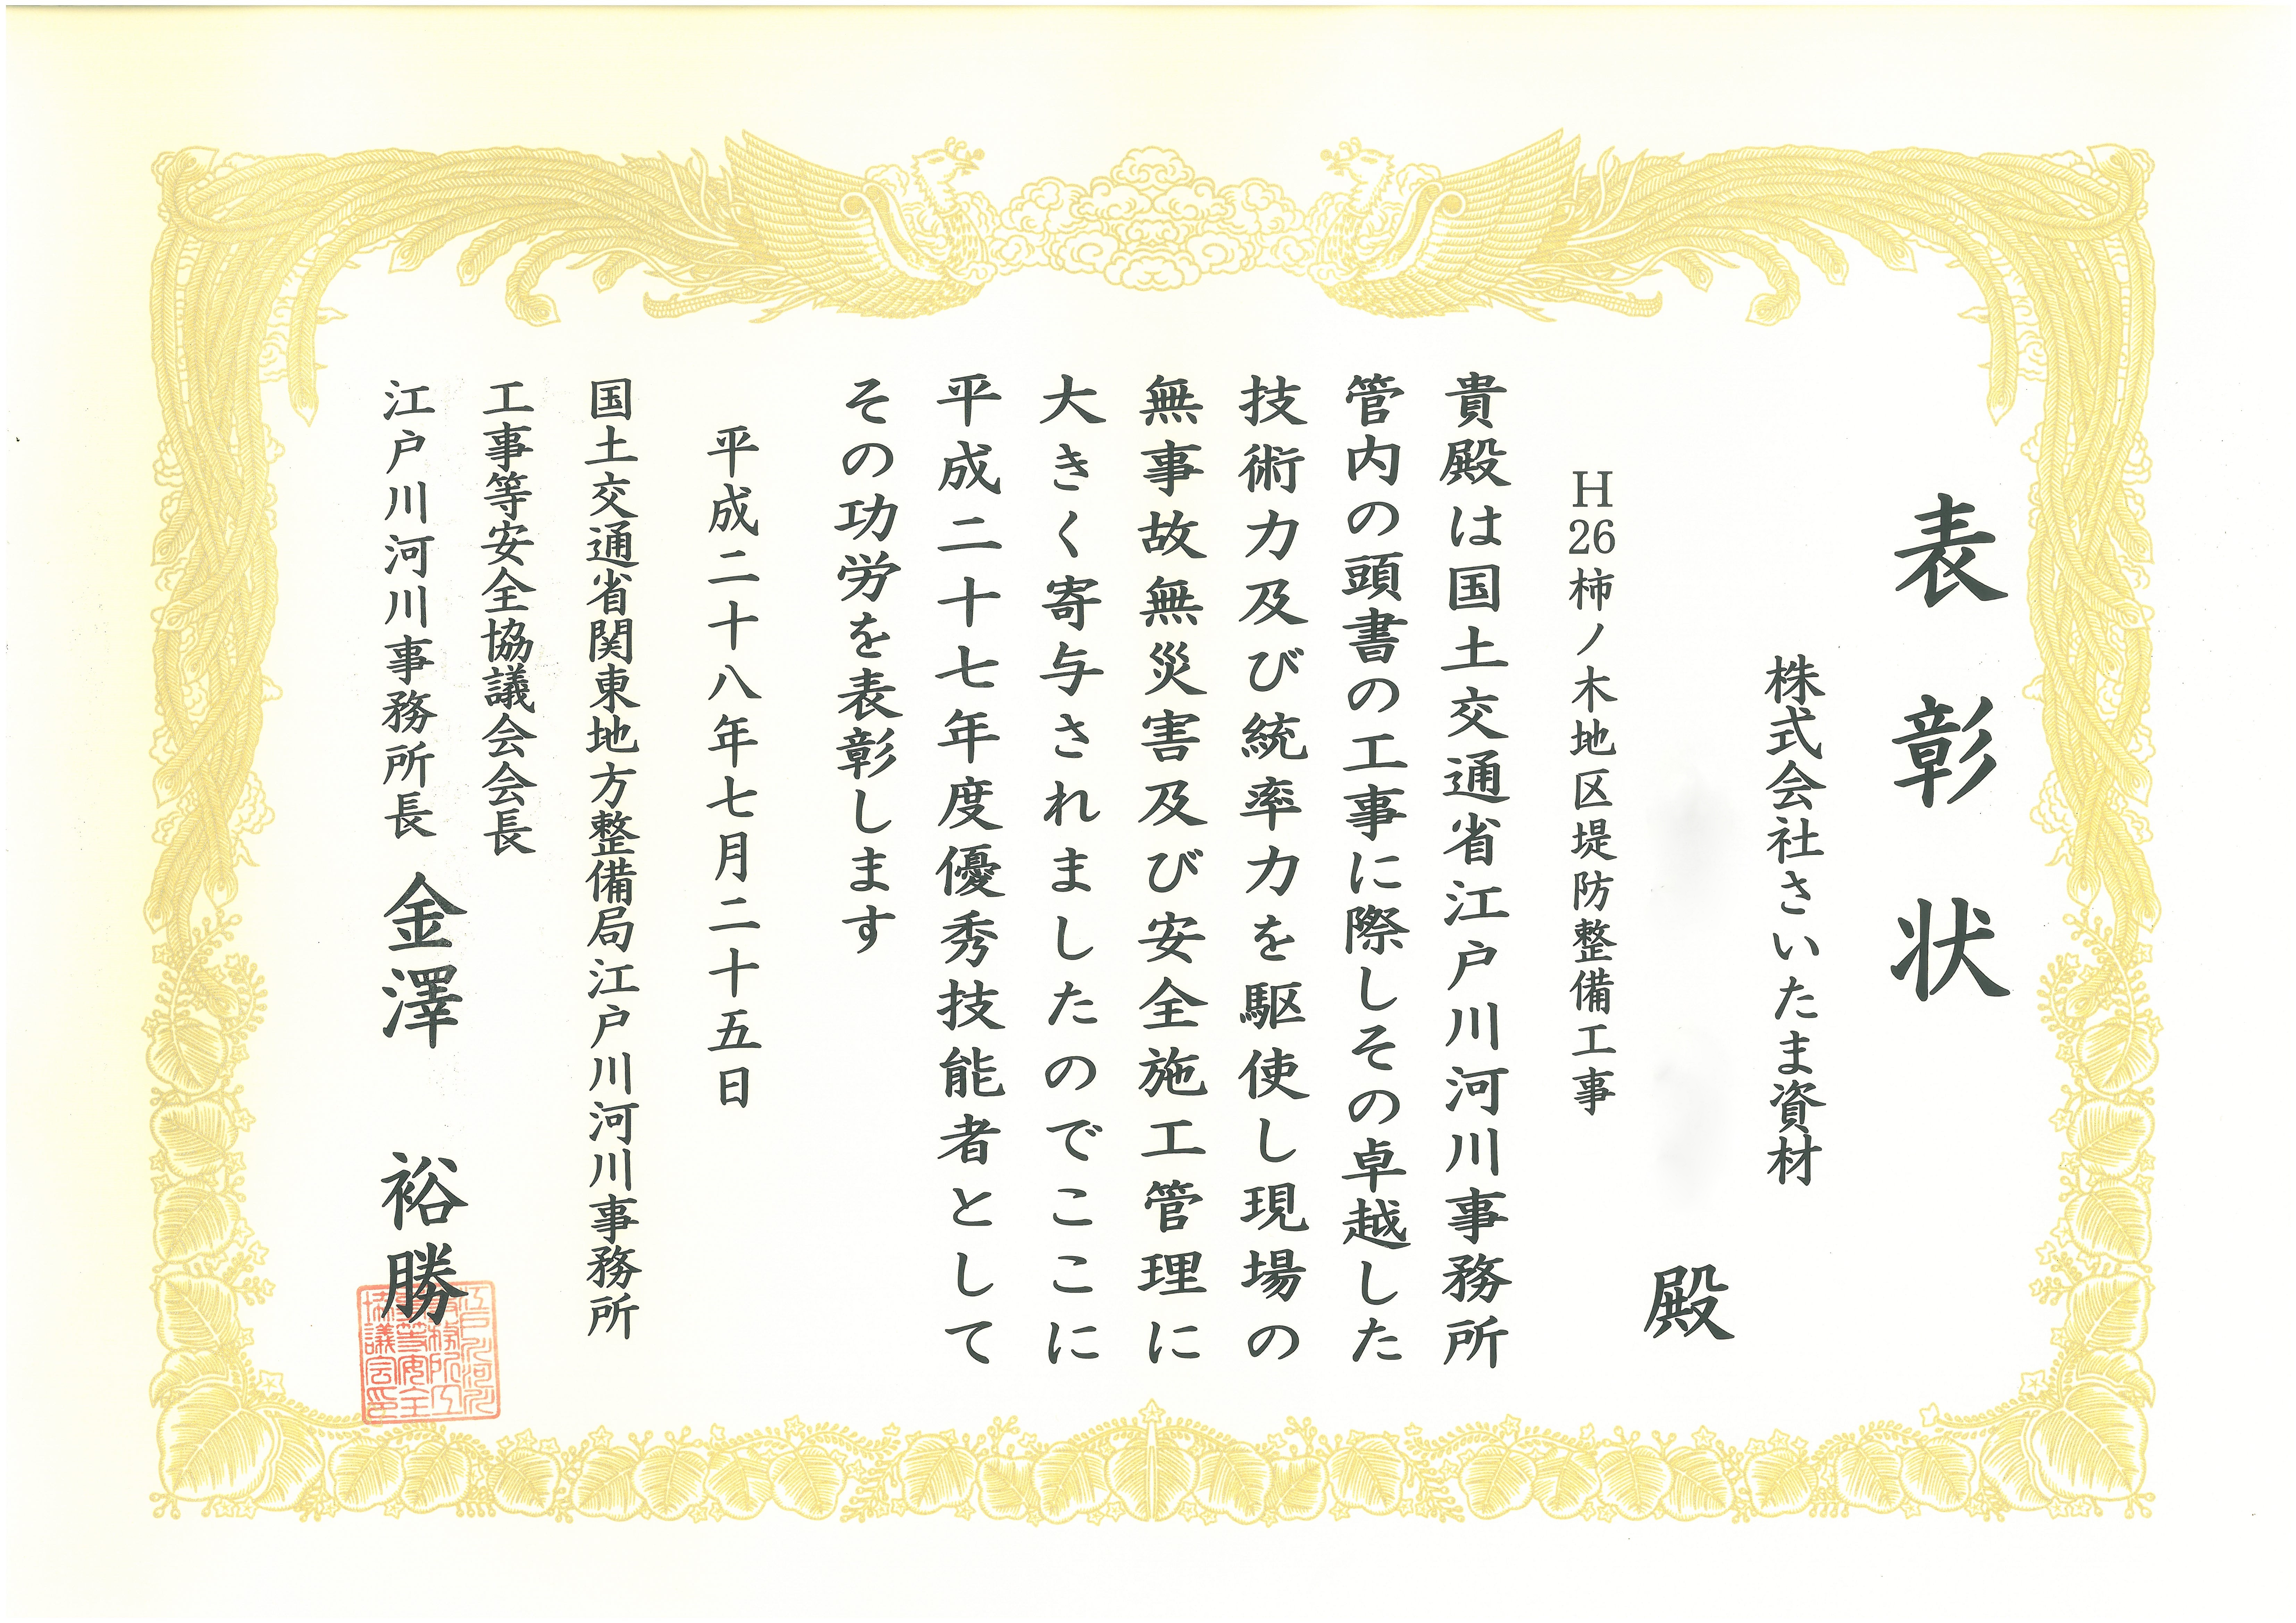 表彰状
株式会社さいたま資材
殿
H26柿ノ木地区堤防整備工事
貴殿は国土交通省江戸川河川事務所
管内の頭書の工事に際しその卓越した
技術力及び統率力を駆使し現場の
無事故無災害及び安全施工管理に
大きく寄与されましたのでここに
平成二十七年度優秀技能者として
その功労を表彰します
平成二十八年七月二十五日
国土交通省関東地方整備局江戸川河川事務所
工事等安全協議会会長
江戸川河川事務所長 金澤 裕勝
江戸川河川
事務所工
事等安全
協議会印